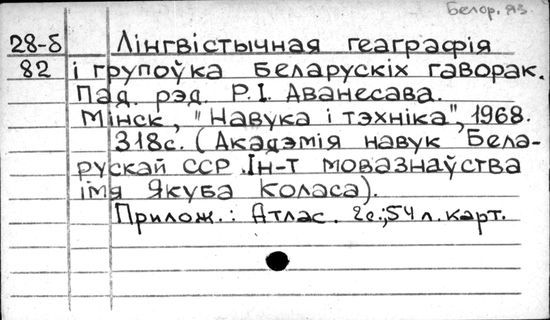 Белор. яз.
28-б Лінгвістычная геаграфія
82 і групоўка беларускіх гаворак.
Пад. рэд. Р.І. Аванесава.
Мінск, "Навука і тэхніка", 1968.
318с. (Акадэмія навук Бела-
рускай ССР. Ін-т мовазнаўства
імя Якуба Коласа).
Прилож.: Атлас. 2с.; 54 л. карт.